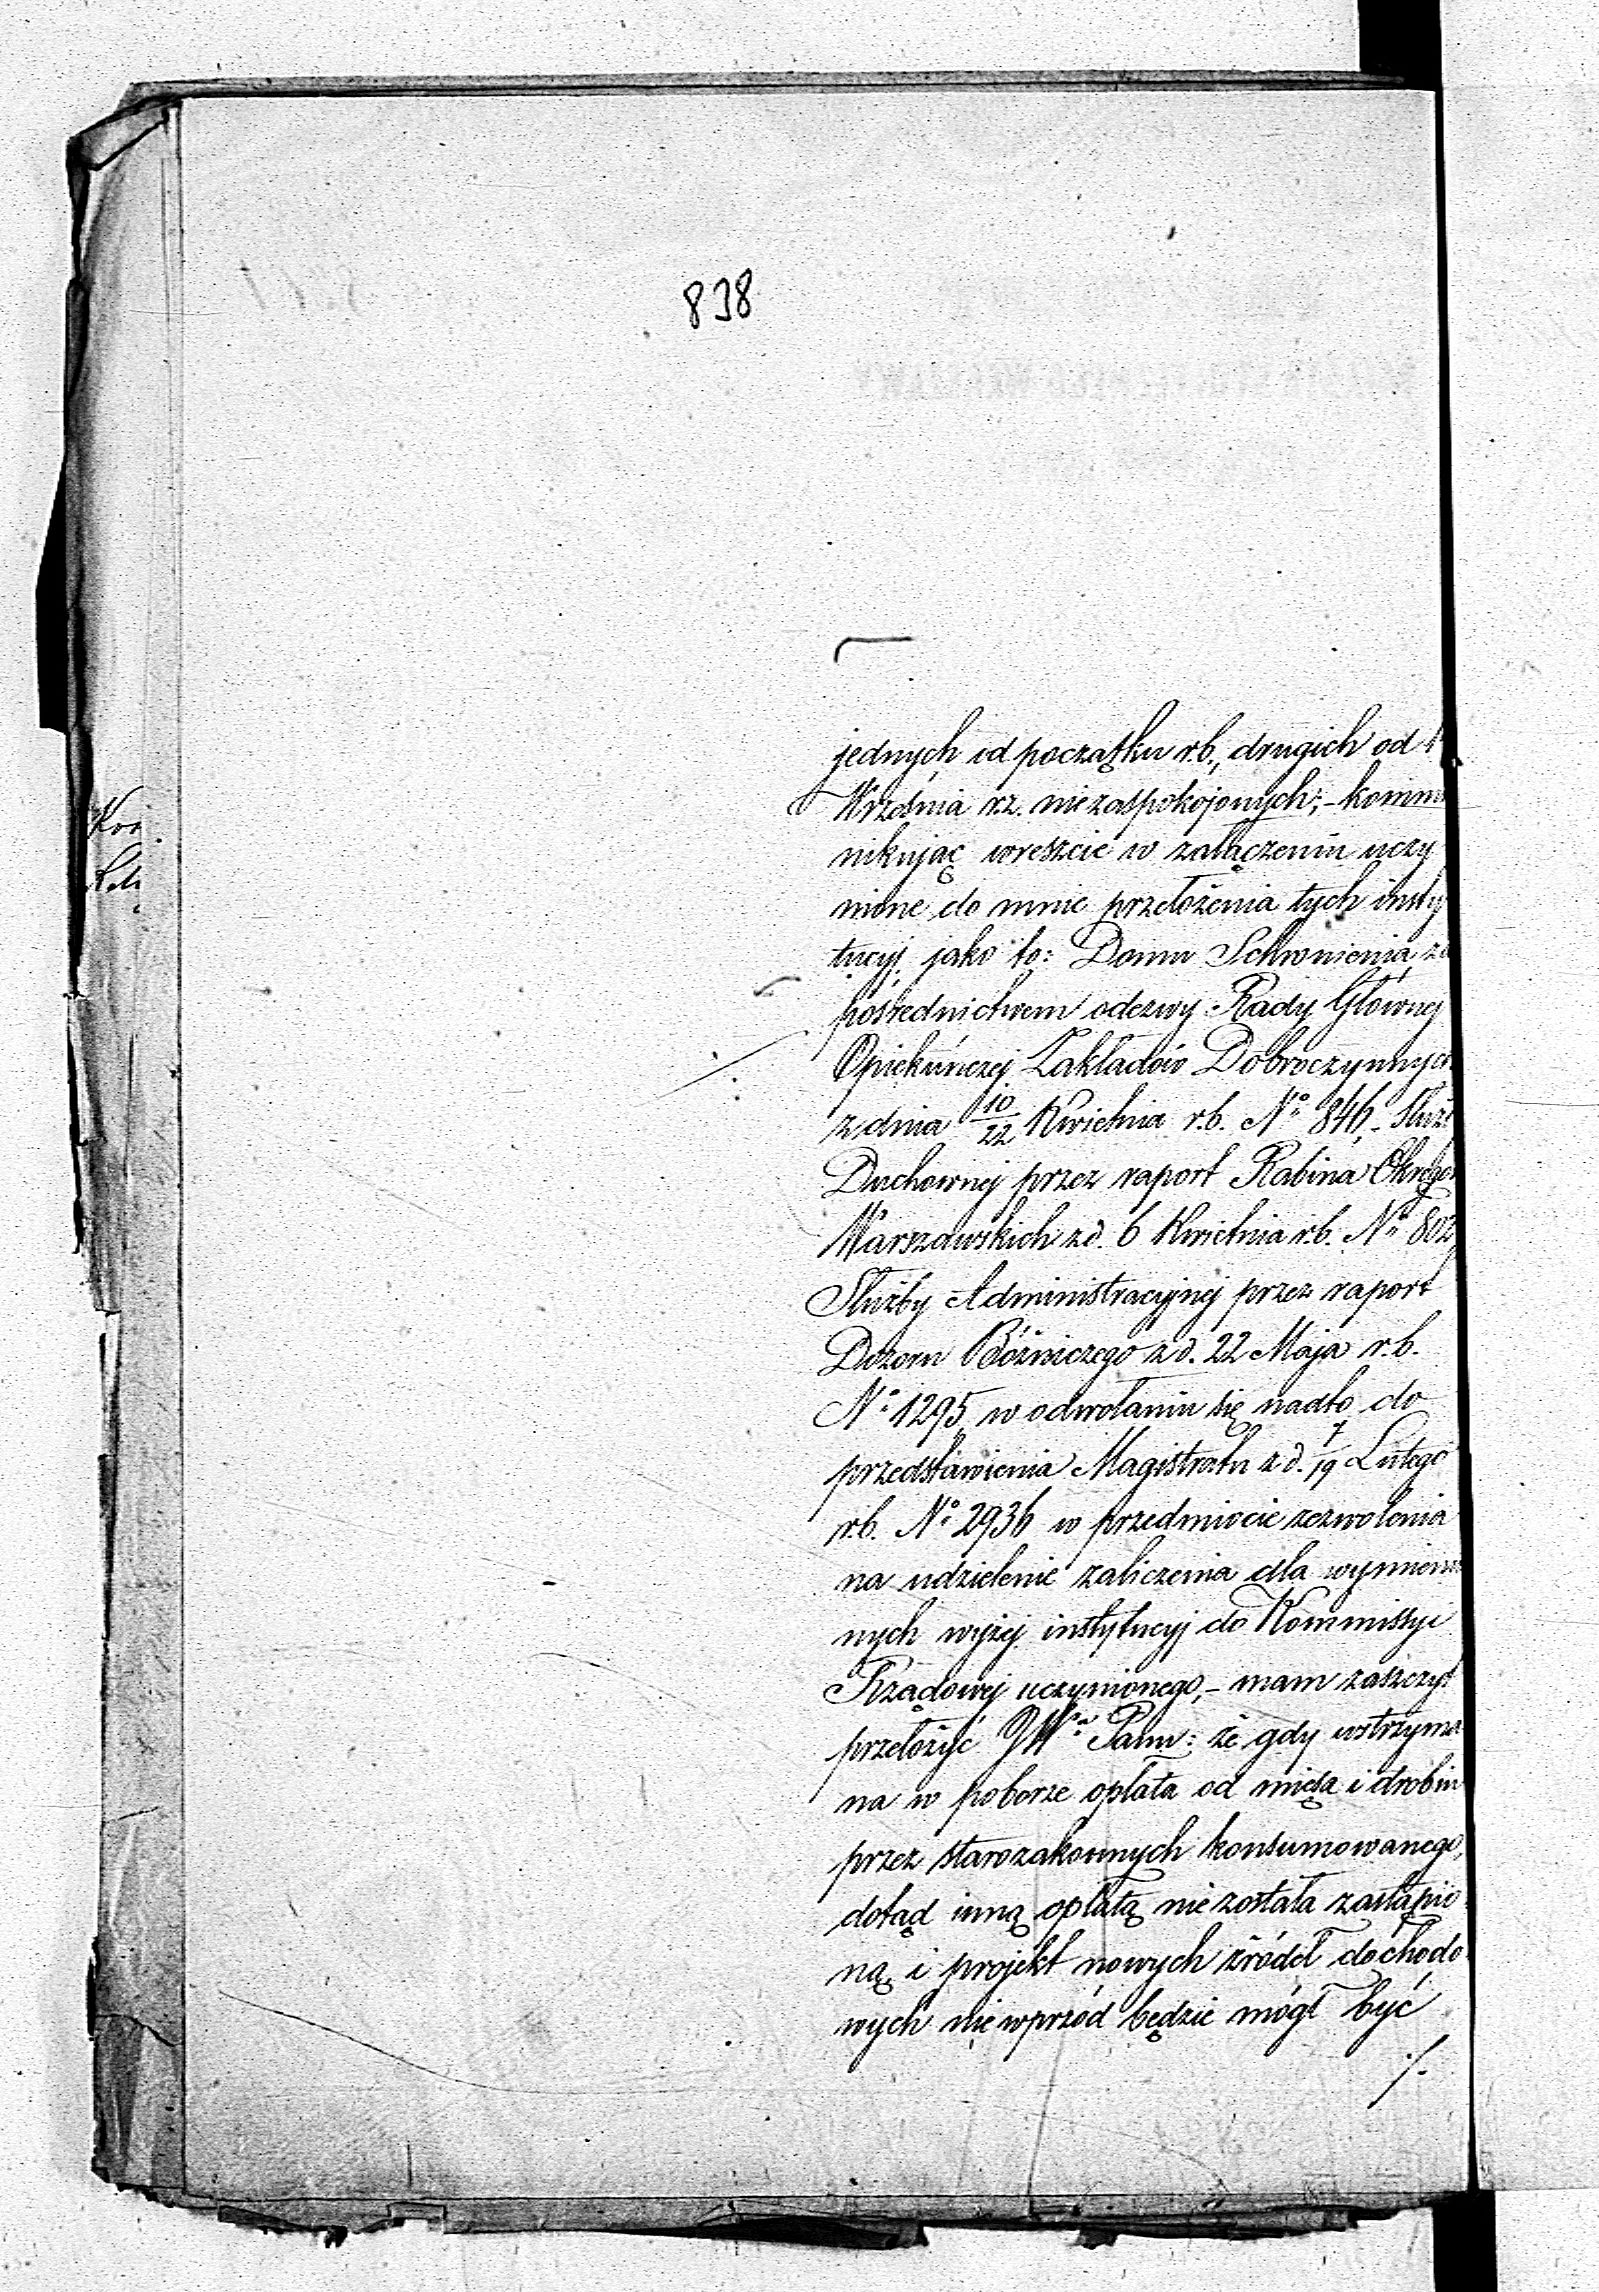 838
jednych od początku r.b., drugich od 1
Września r.z. niezaspokojonych; - kommu
nikując wreszcie w załączeniu uczy
nione do mnie przełożenia tych insty
tucyj jako to: Domu Schronienia za
pośrednictwem odezwy Rady Głównej
Opiekuńczej Zakładów Dobroczynnych
z dnia 10/22 Kwietnia r.b. No 846, - Służb
Duchownej przez raport Rabina Okręgów
Warszawskich z d. 6 Kwietnia r.b. No 802
Służby Administracyjnej przez raport
Dozoru Bóżniczego z d. 22 Maja r.b.
No 1295, w odwołaniu się nadto do
przedstawienia Magistratu z d. 7/19 Lutego
r.b. No 2936 w przedmiocie zezwolenia
na udzielenie zaliczenia dla wymienio
nych wyżej instytucyj do Kommissyi
Rządowej uczynionego, - mam zaszczyt
przełożyć JWu Panu: że gdy wstrzyma
na w poborze opłata od mięsa i drobiu
przez starozakonnych konsumowanego,
dotąd inną opłatą nie została zastąpio
ną, i projekt nowych źródeł dochodo
wych nie wprzód będzie mógł być
./.